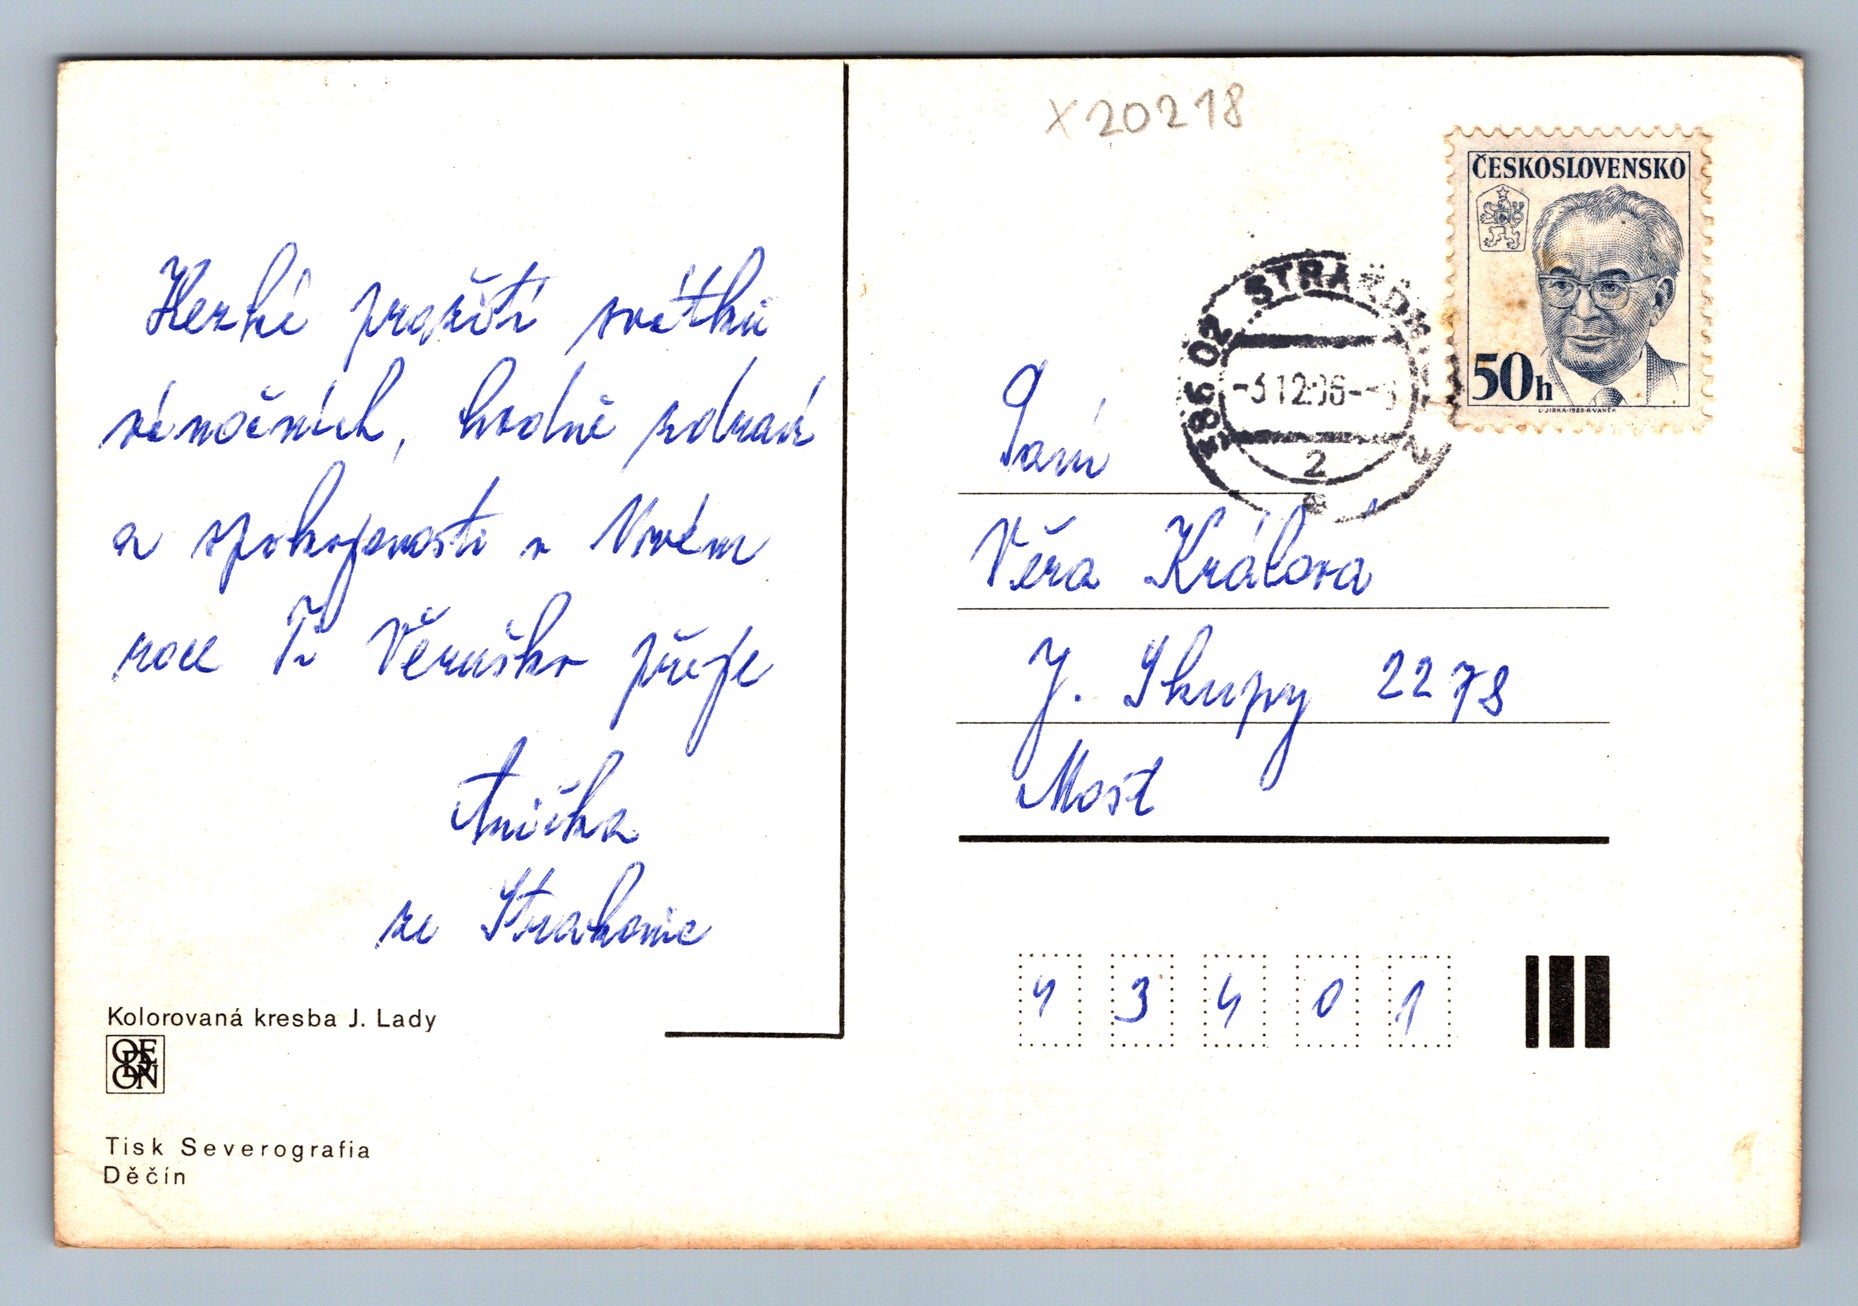 X20218
ČESKOSLOVENSKO
50h
L. JIRKA-1983-R. VANĚK
386 02
-3.12.86-
2
a
Hezké prožití svátků
vánočních, hodně zdraví
a spokojenosti v Novém
roce Ti Věruško přeje
Anička
ze Strakonic
Paní
Věra Králová
J. Skupy 2278
Most
43401
Kolorovaná kresba J. Lady
ODEON
Tisk Severografia
Děčín